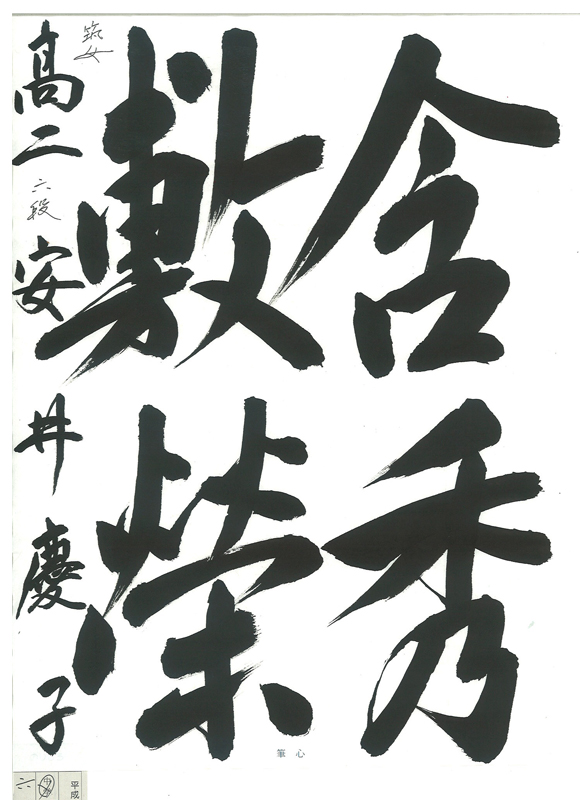 含秀
敷榮
筑女
高二 六段 安井慶子
筆心
平成
六